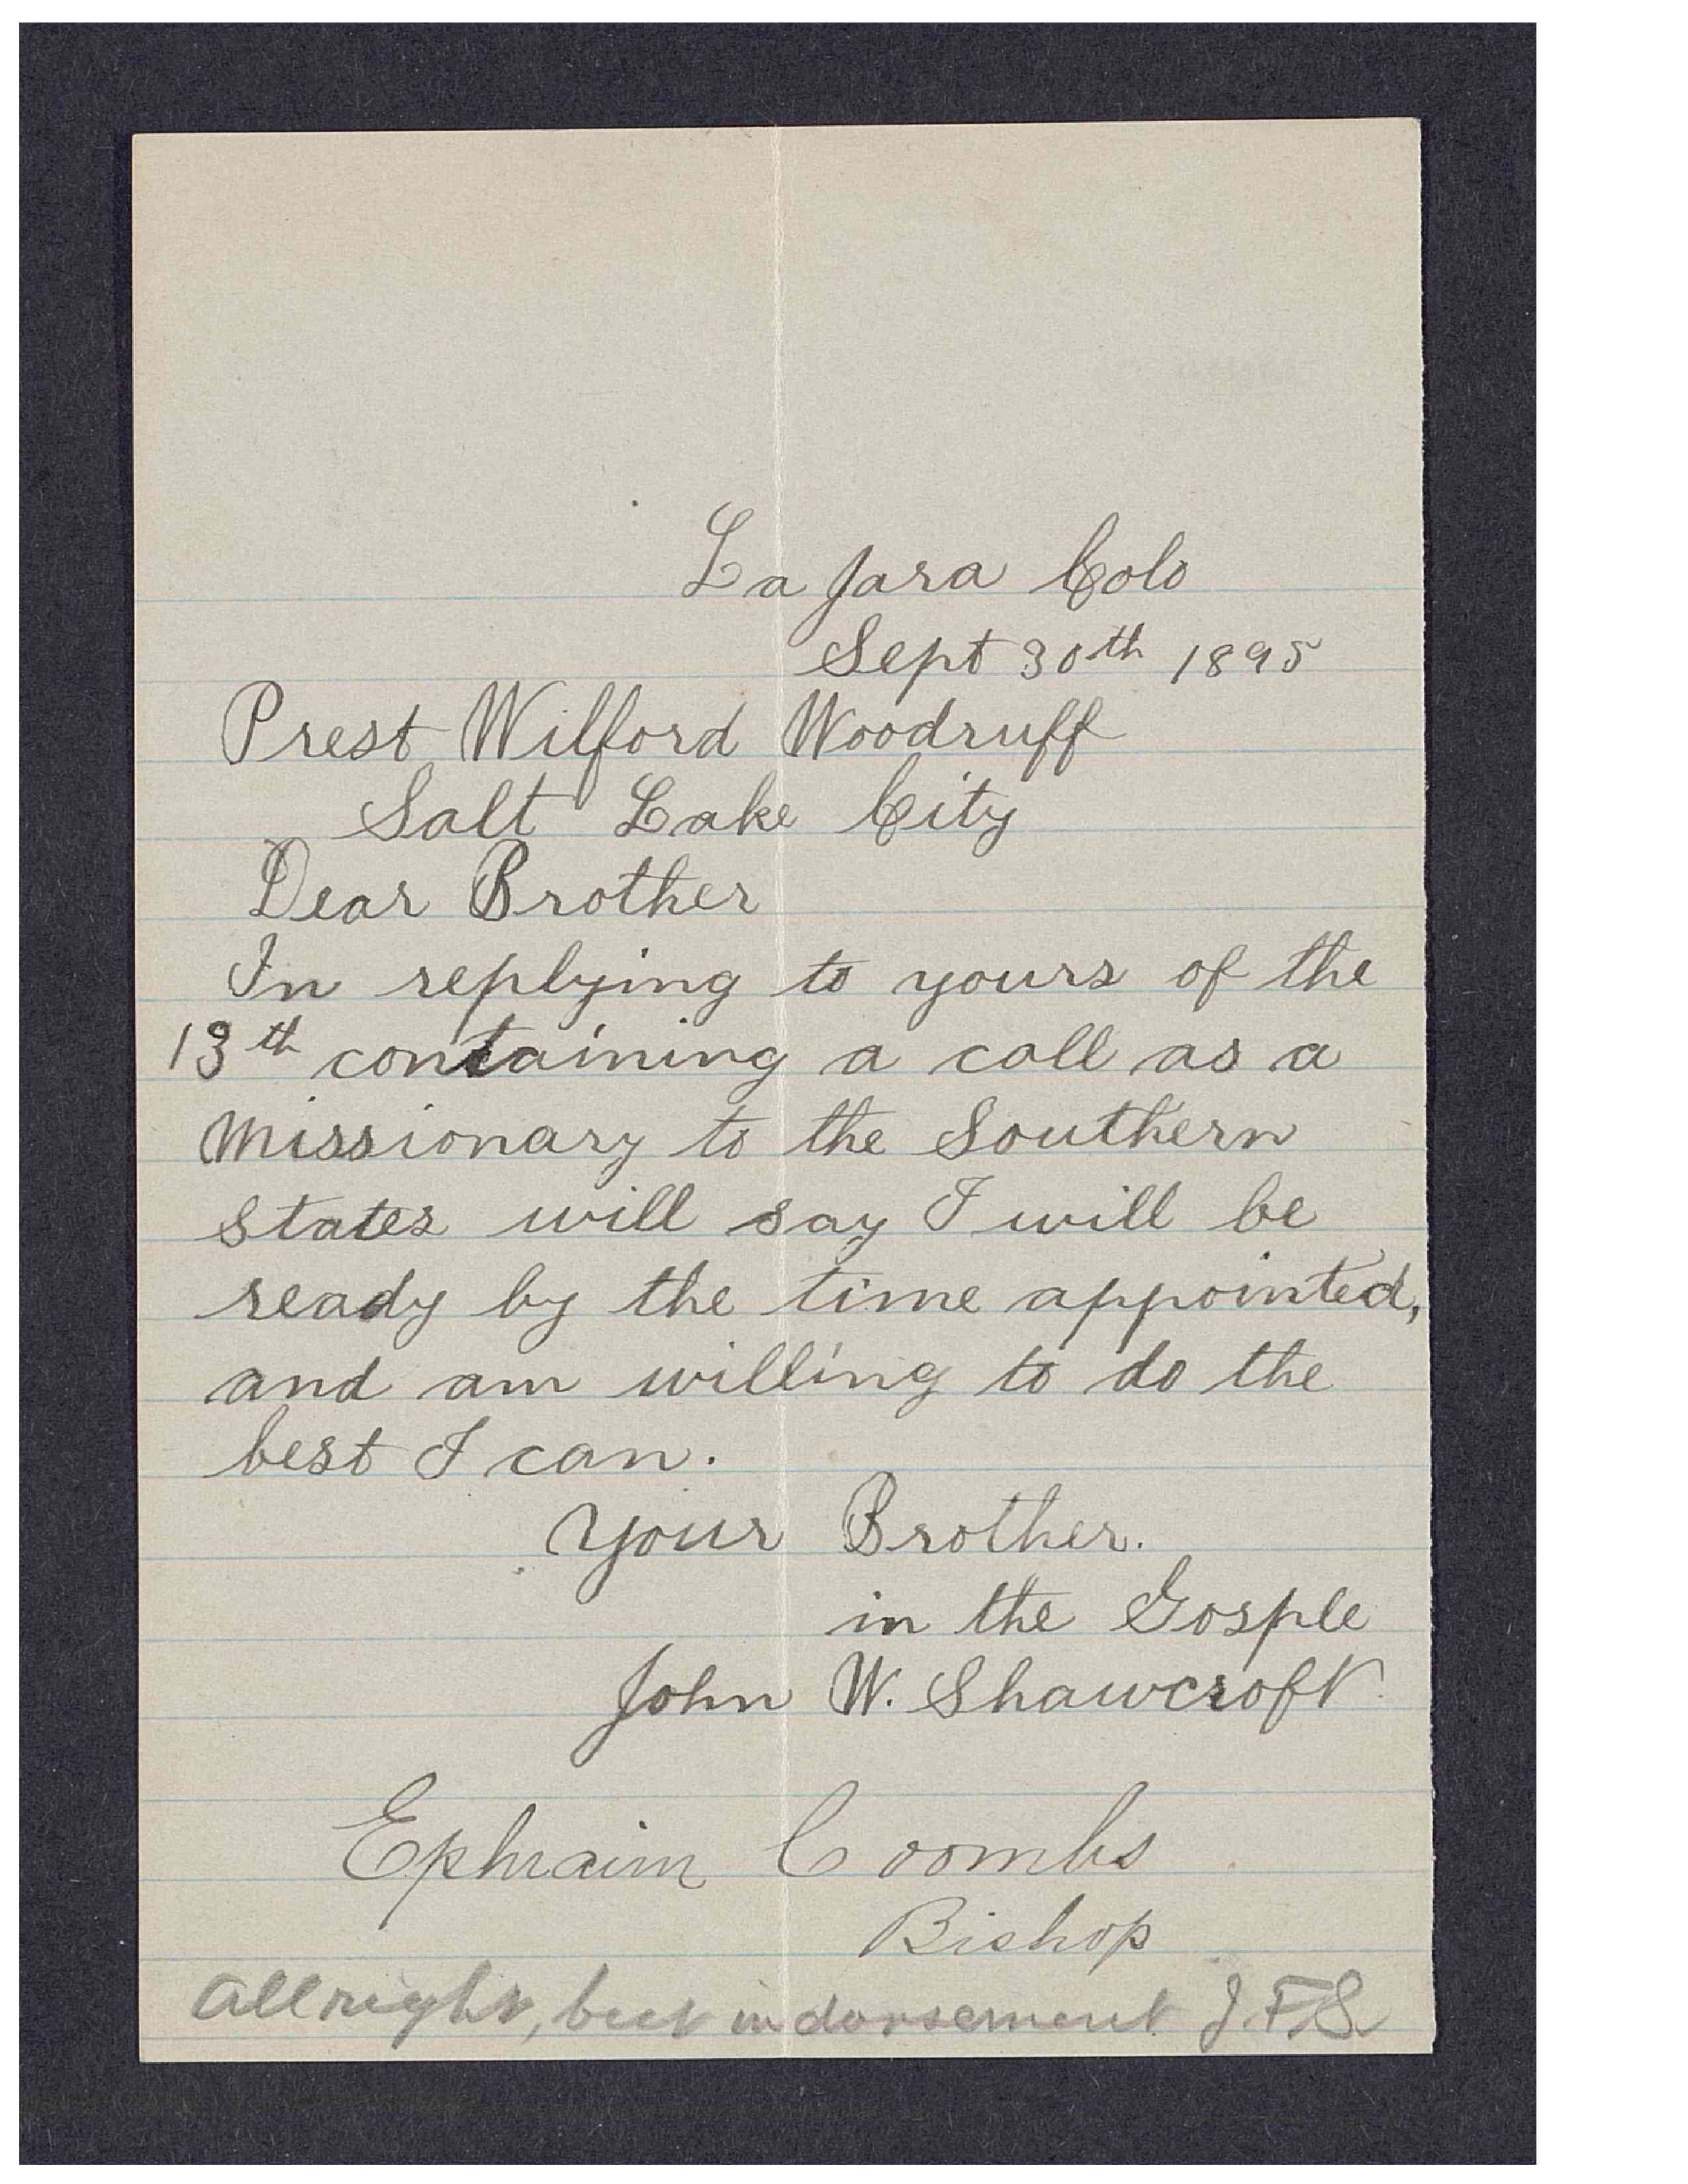 La Jara Colo
Sept 30th 1895
Prest Wilford Woodruff
Salt Lake City
Dear Brother
In replying to yours of the
13th containing a call as a
missionary to the Southern
States will say I will be
ready by the time appointed,
and am willing to do the
best I can.
Your Brother.
in the Gosple
John W. Shawcroft
Ephraim Coombs
Bishop
All right, but indorsement J. F. S.